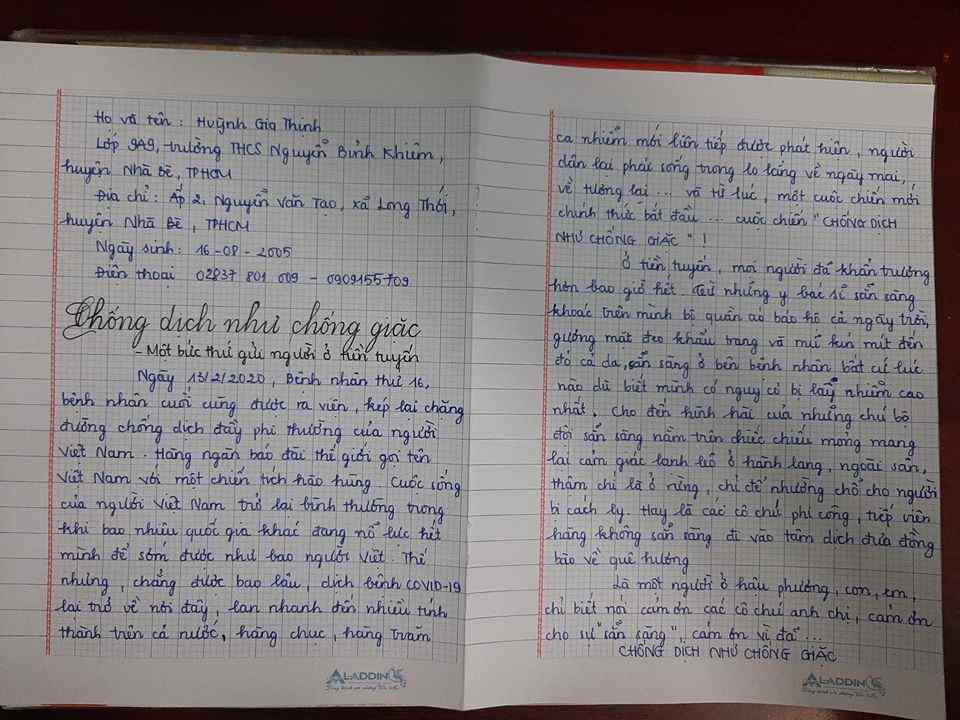 Họ và tên : Huỳnh Gia Thịnh
Lớp 9A9, trường THCS Nguyễn Bỉnh Khiêm,
huyện Nhà Bè, TPHCM
Địa chỉ : Ấp 2, Nguyễn Văn Tạo, xã Long Thới,
huyện Nhà Bè, TPHCM
Ngày sinh : 16-08-2005
Điện thoại 02837 801 009 - 0909155709
Chống dịch như chống giặc
- Một bức thư gửi người ở tiền tuyến
Ngày 13/2/2020, Bệnh nhân thứ 16,
bệnh nhân cuối cùng được ra viện, khép lại chặng
đường chống dịch đầy phi thường của người
Việt Nam. Hàng ngàn báo đài thế giới gọi tên
Việt Nam với một chiến tích hào hùng. Cuộc sống
của người Việt Nam trở lại bình thường trong
khi bao nhiêu quốc gia khác đang nỗ lực hết
mình để sớm được như bao người Việt. Thế
nhưng, chẳng được bao lâu, dịch bệnh COVID-19
lại trở về nơi đây, lan nhanh đến nhiều tỉnh
thành trên cả nước, hàng chục, hàng trăm
ca nhiễm mới liên tiếp được phát hiện, người
dân lại phải sống trong lo lắng về ngày mai,
về tương lai ... và từ lúc, một cuộc chiến mới
chính thức bắt đầu ... cuộc chiến "CHỐNG DỊCH
NHƯ CHỐNG GIẶC" !
Ở tiền tuyến, mọi người đã khẩn trương
hơn bao giờ hết. Từ những y bác sĩ sẵn sàng
khoác trên mình bộ quần áo bảo hộ cả ngày trời,
gương mặt đeo khẩu trang và mũ kín mít đến
đỏ cả da, sẵn sàng ở bên bệnh nhân bất cứ lúc
nào dù biết mình có nguy cơ bị lây nhiễm cao
nhất. Cho đến hình hài của những chú bộ
đội sẵn sàng nằm trên chiếc chiếu mong mang
lại cảm giác lạnh lẽo ở hành lang, ngoài sân,
thậm chí là ở rừng, chỉ để nhường chỗ cho người
bị cách ly. Hay là các cô chú phi công, tiếp viên
hàng không sẵn sàng đi vào tâm dịch đưa đồng
bào về quê hương
Là một người ở hậu phương, con, em,
chỉ biết nói cảm ơn các cô chú anh chị, cảm ơn
cho sự "sẵn sàng", cảm ơn vì đã ...
CHỐNG DỊCH NHƯ CHỐNG GIẶC
ALADDIN
ALADDIN